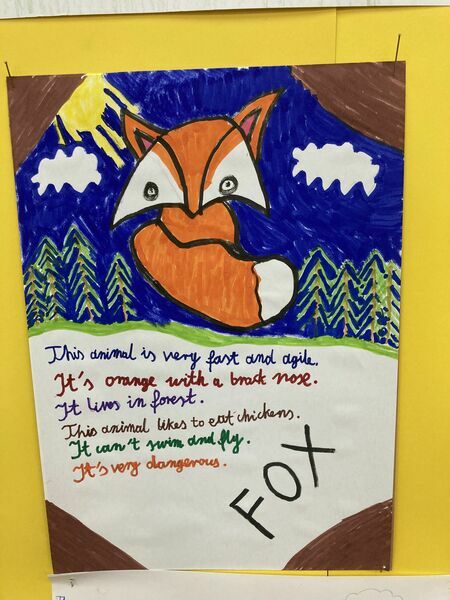 This animal is very fast and agile.
It's orange with a brack nose.
It lives in forest.
This animal likes to eat chickens.
It can't swim and fly.
It's very dangerous.
FOX